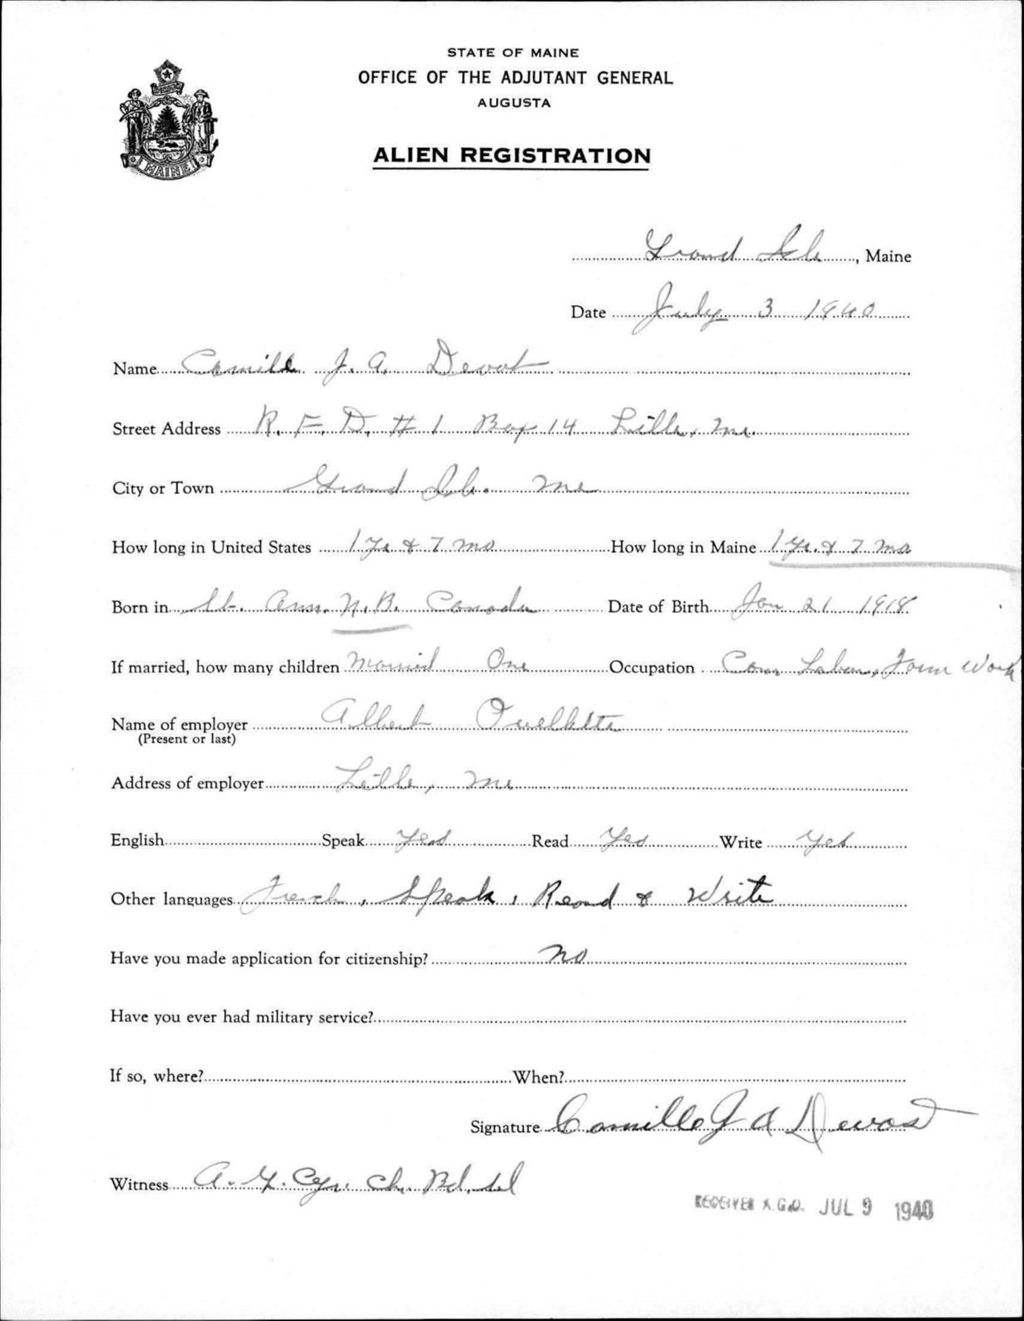 STATE OF MAINE
OFFICE OF THE ADJUTANT GENERAL
AUGUSTA
ALIEN REGISTRATION
MAINE
Grand Isle, Maine
Date July 3 1940
Name Camille J. A. Devost
Street Address R. F. D. # 1 Box 14 Lille, Me.
City or Town Grand Isle. Me
How long in United States 1 yr & 7 mo How long in Maine 1 yr. & 7 mo
Born in St. Ann. N. B. Canada Date of Birth Jan 21 1918
If married, how many children Married One Occupation Com Labor, Farm Work
Name of employer Albert Ouellette
(Present or last)
Address of employer Lille, Me
English Speak Yes Read Yes Write Yes
Other languages French, Speak, Read & Write
Have you made application for citizenship? No
Have you ever had military service?
If so, where? When?
Signature Camille J A Devost
Witness A. Y. Cyr. Ch. Bd. Sel
RECEIVED A.G.O. JUL 9 1940